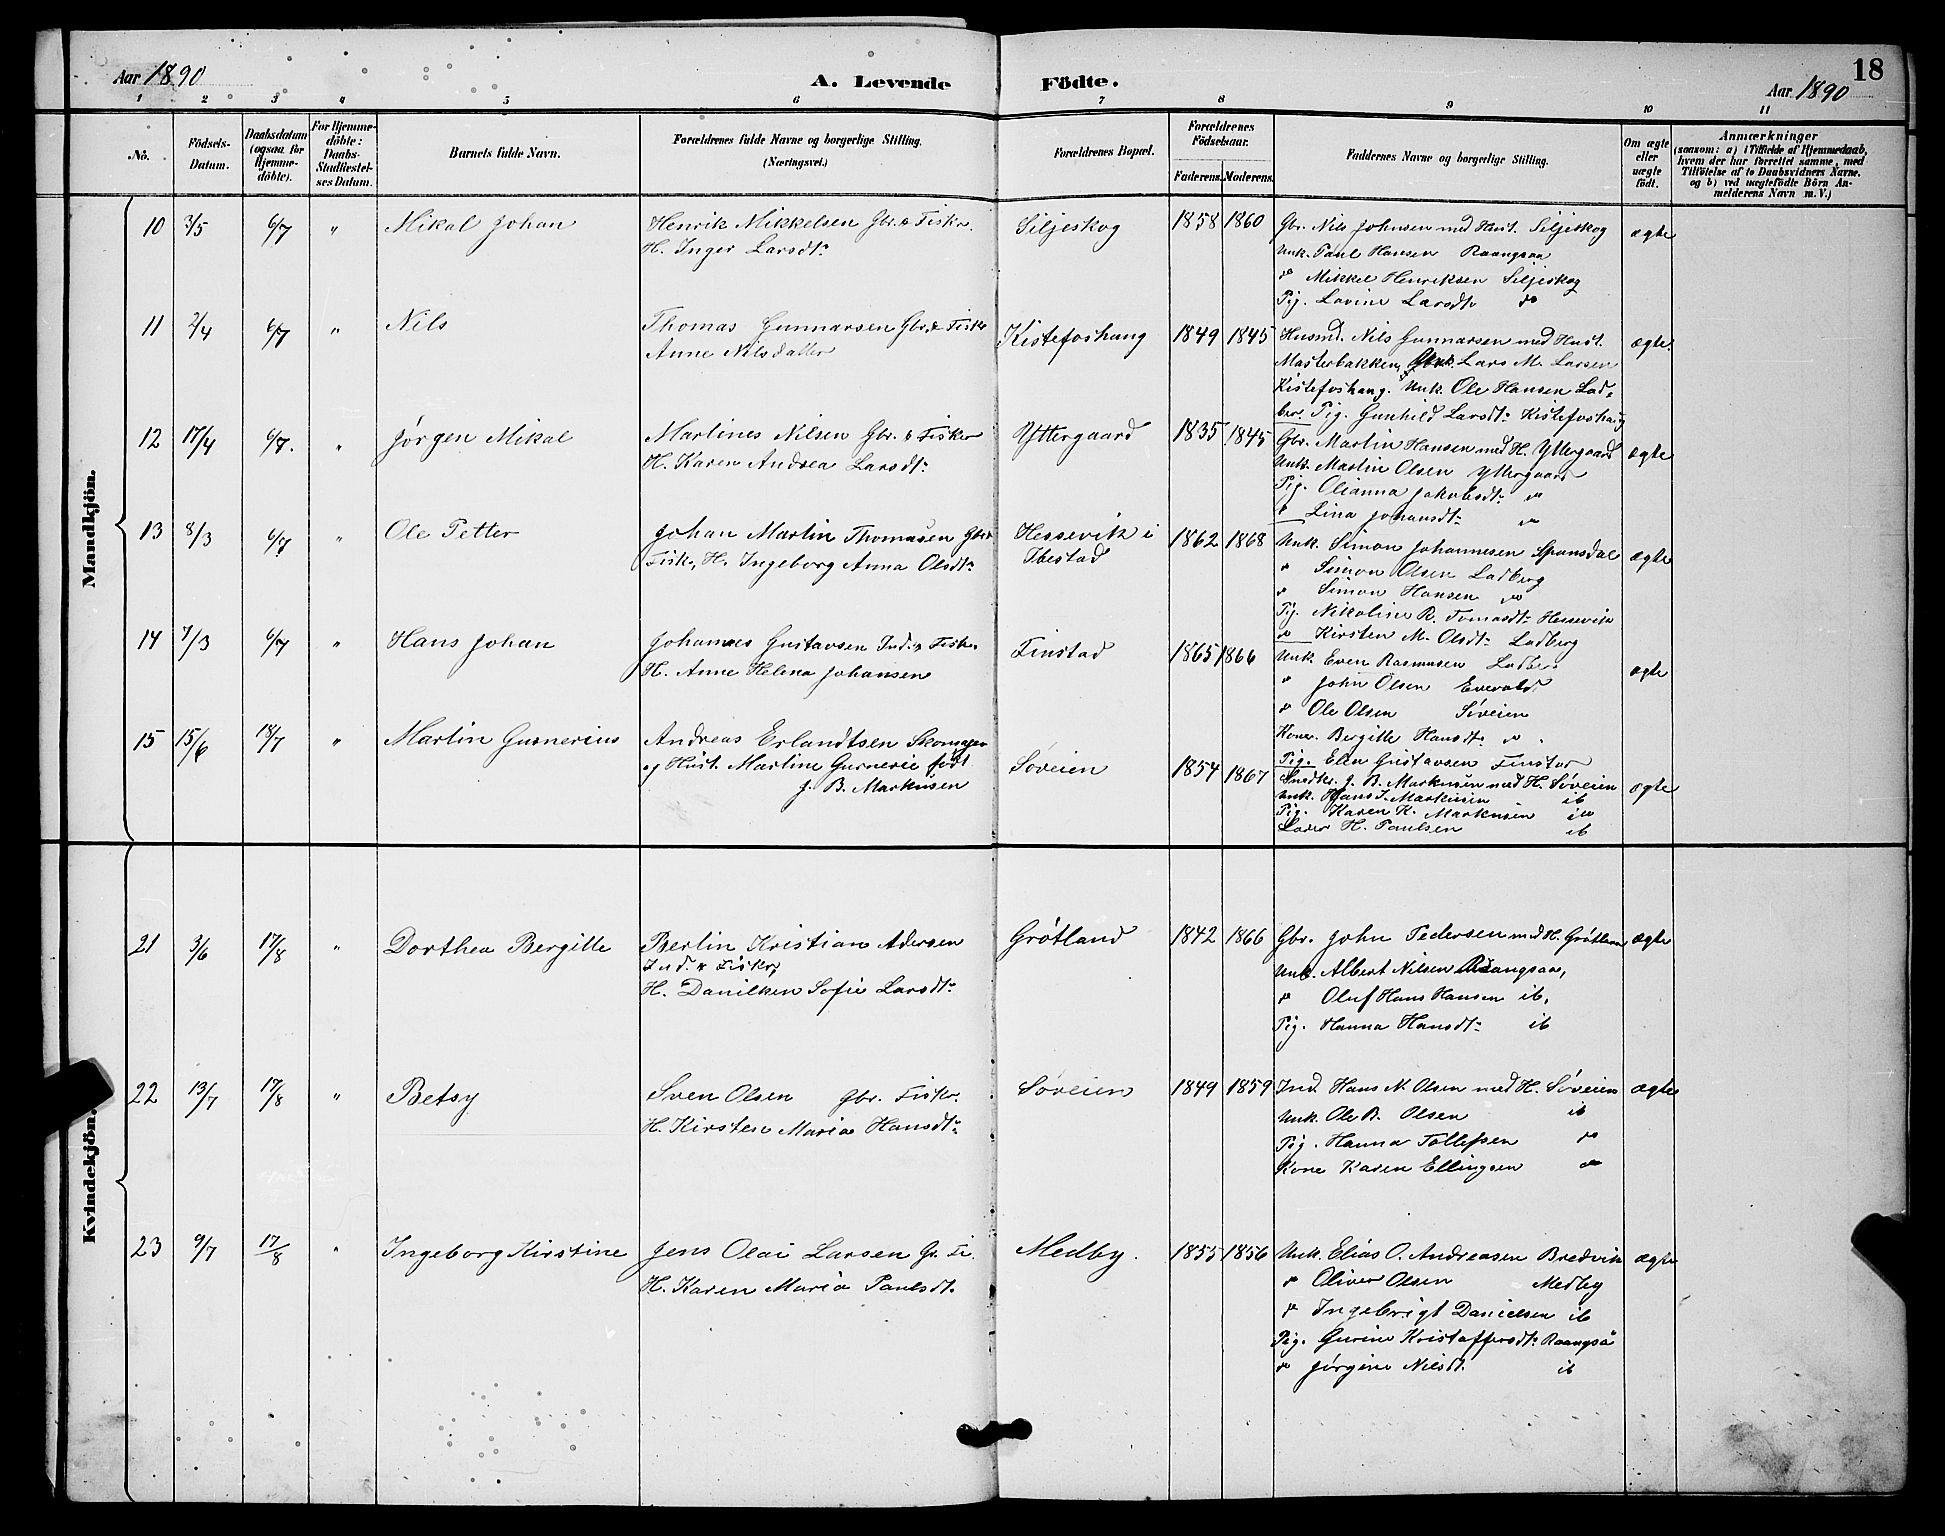 18
Aar 1890
A. Levende Födte.
Aar 1890
1 2 3 4 5 6 7 8 9 10 11
No.
Födsels-Datum.
Daabsdatum (ogsaa for Hjemme-döbte).
For Hjemme-döbte: Daabs-Stadfæstel-ses Datum.
Barnets fulde Navn.
Forældrenes fulde Navne og borgerlige Stilling.
(Næringsvei.)
Forældrenes Bopæl.
Forældrenes Födselsaar.
Faderens. Moderens.
Faddernes Navne og borgerlige Stilling.
Om ægte eller uægte födt.
Anmærkninger
(saasom: a) i Tilfælde af Hjemmedaab,
hvem der har forrettet samme, med
Tilföielse af to Daabsvidners Navne.
og b) ved uægtefödte Börn An-
melderens Navn m.V.)
Mandkjön.
10 3/5 6/7 " Mikal Johan
Henrik Mikkelsen Gbr. & Fisker.
H. Inger Larsdt.
Siljeskog 1858 1860
Gbr. Nils Johnsen med Hust. Siljeskog
Unk. Paul Hansen Raangsaa
" Mikkel Henriksen Siljeskog
Pig. Lovine Larsdt. do
ægte
11 2/4 6/7 " Nils
Thomas Gunnarsen Gbr. & Fisk
Anne Nilsdatter
Kistefoshaug 1849 1845
Husmd. Nils Gunnarsen med Hust.
Masterbakken, Lars M. Larsen
Kistefoshaug. Unk. Ole Hansen Lad-
berg. Pig. Gunhild Larsdt. Kistefoshaug
ægte.
12 17/4 6/7. " Jörgen Mikal
Martines Nilsen Gbr. & Fisker
H. Karen Andrea Larsdt.
Yttergaard 1835 1845
Gbr. Martin Hansen med H. Yttergaard
Unk. Martin Olsen Yttergaard
Pig. Olianna Jakobsdt. "
" Lina Johansdt. "
ægte
13 8/3 6/7 " Ole Petter
Johan Martin Thomasen Gbr &
Fisk., H. Ingeborg Anna Olsdt.
Hessevik i
Ibestad
1862 1868
Unk. Simon Johannesen Spansdal
" Simon Olsen Ladberg
" Simon Hansen "
Pig. Nikoline R. Tomasdt. Hessevik
" Kirsten M. Olsdt. Ladberg
ægte
14 7/3 6/7 " Hans Johan
Johannes Gustavsen Ind. & Fisk.
H. Anne Helena Johansen
Finstad 1865 1866
Unk. Even Rasmusen Ladberg
" John Olsen
" Ole Olsen Söveien
Kone. Bergitte Hansdt. "
Pig. Elen Gustavsen Finstad
ægte
15 15/6 18/7 " Martin Gunerius
Andreas Erlandtsen Skomager
og Hust. Martine Gunerie født
J. B. Markusen
Söveien 1854 1867
Snedkr. J. B. Markusen med H. Söveien
Unk. Hans J. Markusen ib
Pig. Karen K. Markusen ib
H. Paulsen ib
ægte
Kvindekjön.
21 3/6 17/8 " Dorthea Bergitte
Berlin Kristian Adersen
Ind. & Fisker,
H. Danilken Sofie Larsdt.
Grötland 1842 1866
Gbr. John Pedersen med H. Grötland
Unk. Albert Nilsen Raangsaa,
" Oluf Hans Hansen ib,
Pig. Hanna Hansdt. ib
ægte
22 13/7 17/8 " Betsy
Sven Olsen Gbr. Fisker.
H. Kirsten Maria Hansdt.
Söveien 1849 1859
Ind. Hans N. Olsen med H. Söveien
Unk. Ole B. Olsen ib
Pig. Hanna Tollefsen "
Kone Karen Ellingsen "
ægte
23 9/7 17/8 " Ingeborg Kirstine
Jens Olai Larsen Gr. Fi.
H. Karen Maria Paulsdt.
Medby. 1855 1856
Unk. Elias O. Andreasen Bredvik
" Oliver Olsen Medby
" Ingebrigt Danielsen ib
Pig. Gurine Kristoffersdt. Raangså
" Jörgine Nilsdt. ib
ægte